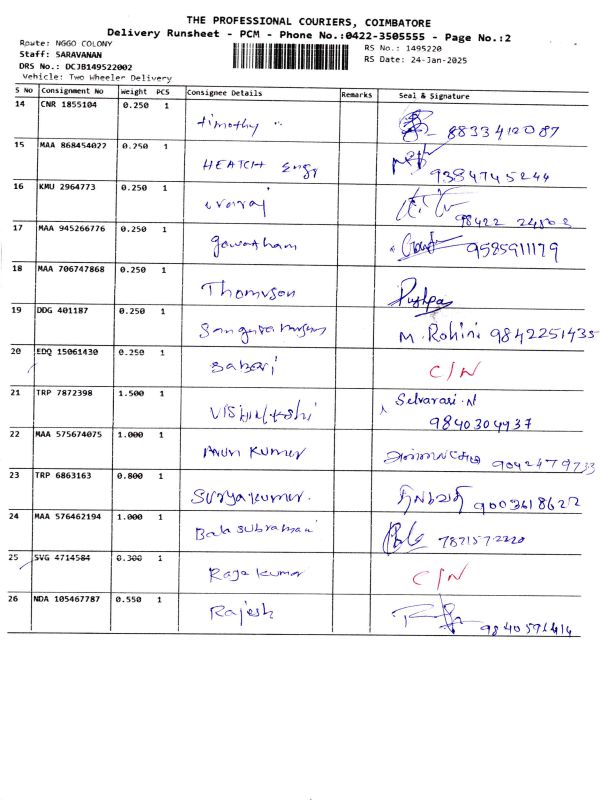 THE PROFESSIONAL COURIERS, COIMBATORE
Delivery Runsheet - PCM - Phone No.:0422-3505555 - Page No.:2
Route: NGGO COLONY
RS No.: 1495220
Staff: SARAVANAN
RS Date: 24-Jan-2025
DRS No.: DCJB149522002
Vehicle: Two Wheeler Delivery
S No Consignment No Weight PCS Consignee Details Remarks Seal & Signature
14 CNR 1855104 0.250 1 timothy 8833412087
15 MAA 868454022 0.250 1 HEATCH Engg 9384745244
16 KMU 2964773 0.250 1 98422
17 MAA 945266776 0.250 1 gowtham 9585911179
18 MAA 706747868 0.250 1 Thomson Pushpa
19 DDG 401187 0.250 1 M. Rohini 9842251435
20 EDQ 15061430 0.250 1 Saberi C/N
21 TRP 7872398 1.500 1 Selvarasi.N
9840304937
22 MAA 575674075 1.000 1 Arun Kumer 9042479733
23 TRP 6863163 0.800 1 Suryakumer. 9003618622
24 MAA 576462194 1.000 1 Bala Subramani 787157-2220
25 SVG 4714584 0.300 1 Raja Kumar C/N
26 NDA 105467787 0.550 1 Rajesh 9840591414